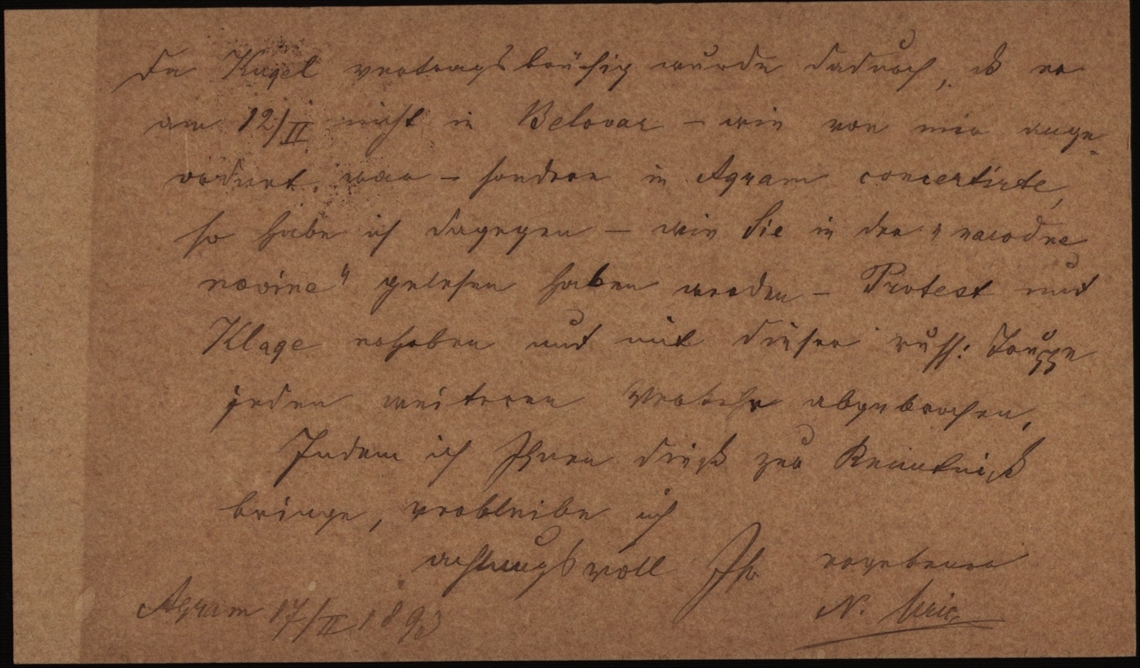 Da Kugel vertragsbrüchig wurde dadurch, dß er
am 12/II nicht in Belovar – wie von mir ange-
ordnet, war – sondern in Agram concertirte,
so habe ich dagegen – wie Sie in der „narodne
novine" gelesen haben werden – Protest und
Klage erhoben und mit dieser russ:
jeden weiteren Verkehr abgebrochen.
Indem ich Ihnen dieß zur Kenntniß
bringe, verbleibe ich
achtungsvoll Ihr ergebener
Agram 17/II 1893 N.